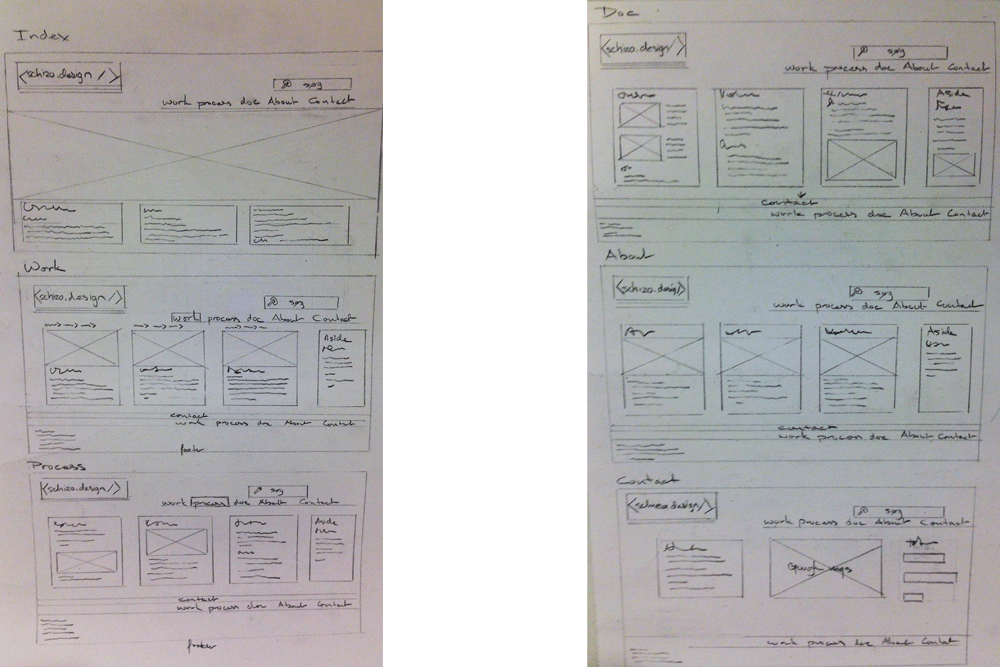 Index
<schizo.design/>
søg
work process doc About Contact
Work
<schizo.design/>
søg
work process doc About Contact
Aside
contact
work process doc About Contact
footer
Process
<schizo.design/>
søg
work process doc About Contact
Aside
contact
work process doc About Contact
footer
Doc
<schizo.design/>
søg
work process doc About Contact
Aside
contact
work process doc About Contact
About
<schizo.design/>
søg
work process doc About Contact
Aside
contact
work process doc About Contact
Contact
<schizo.design/>
søg
work process doc About Contact
work process doc About Contact